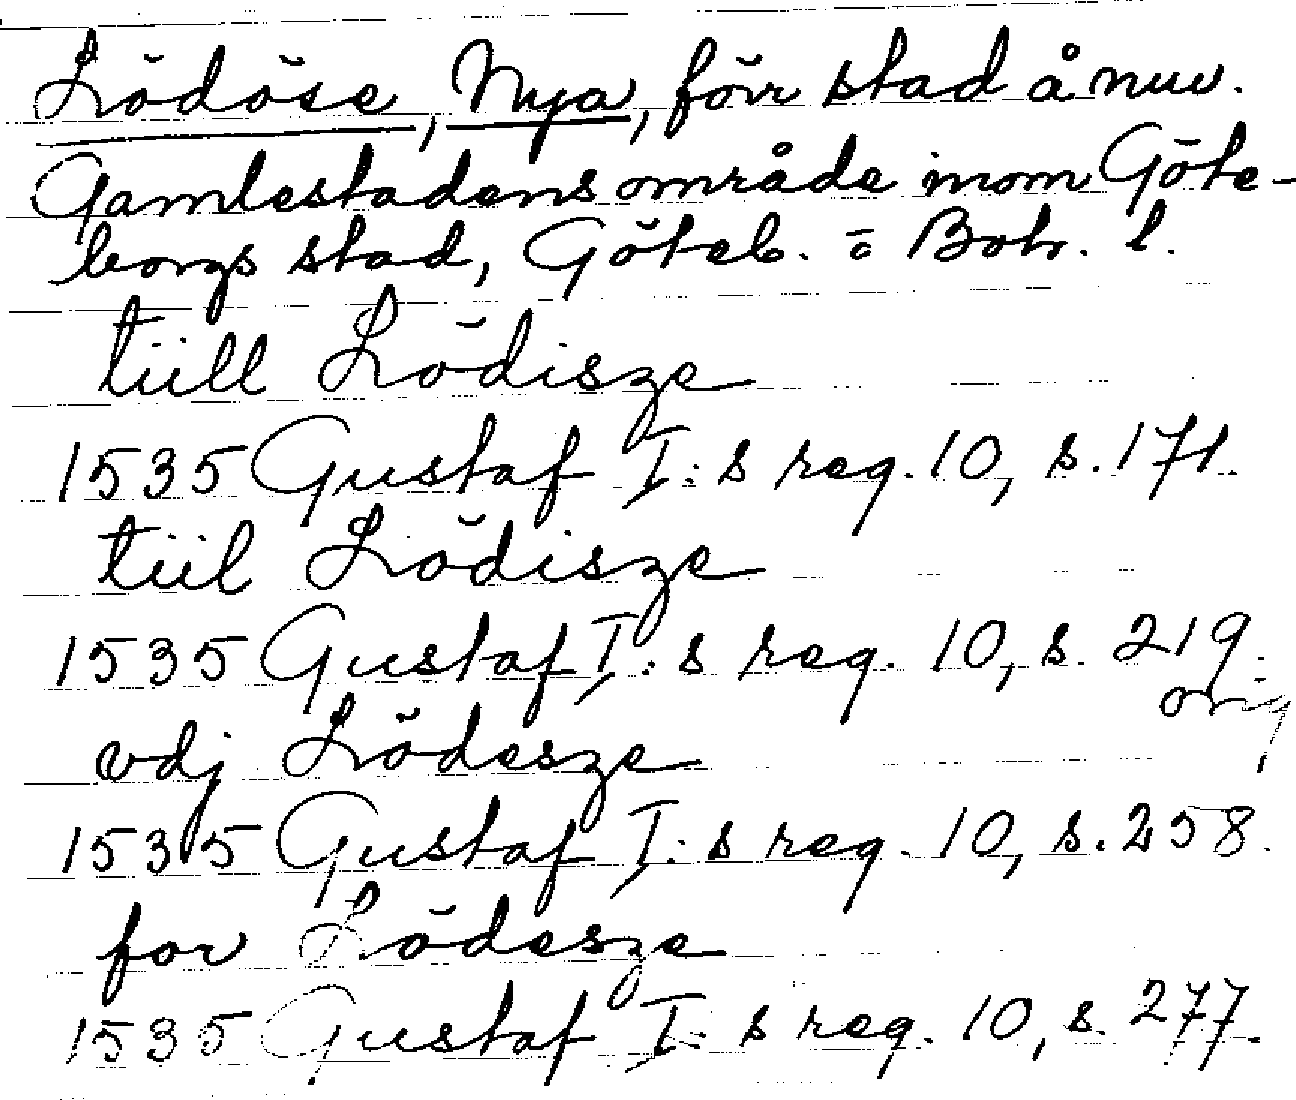 Lödöse, Nya, förr stad å nuv.
Gamlestadens område inom Göte-
borgs stad, Göteb. o Boh. l.
tiill Lödisze
1535 Gustaf I:s reg. 10, s. 171.
tiil Lödisze
1535 Gustaf I:s reg. 10, s. 219.
orig
vdj Lödesze
1535 Gustaf I:s reg. 10, s. 258.
for Lödesze
1535 Gustaf I:s reg. 10, s. 277.